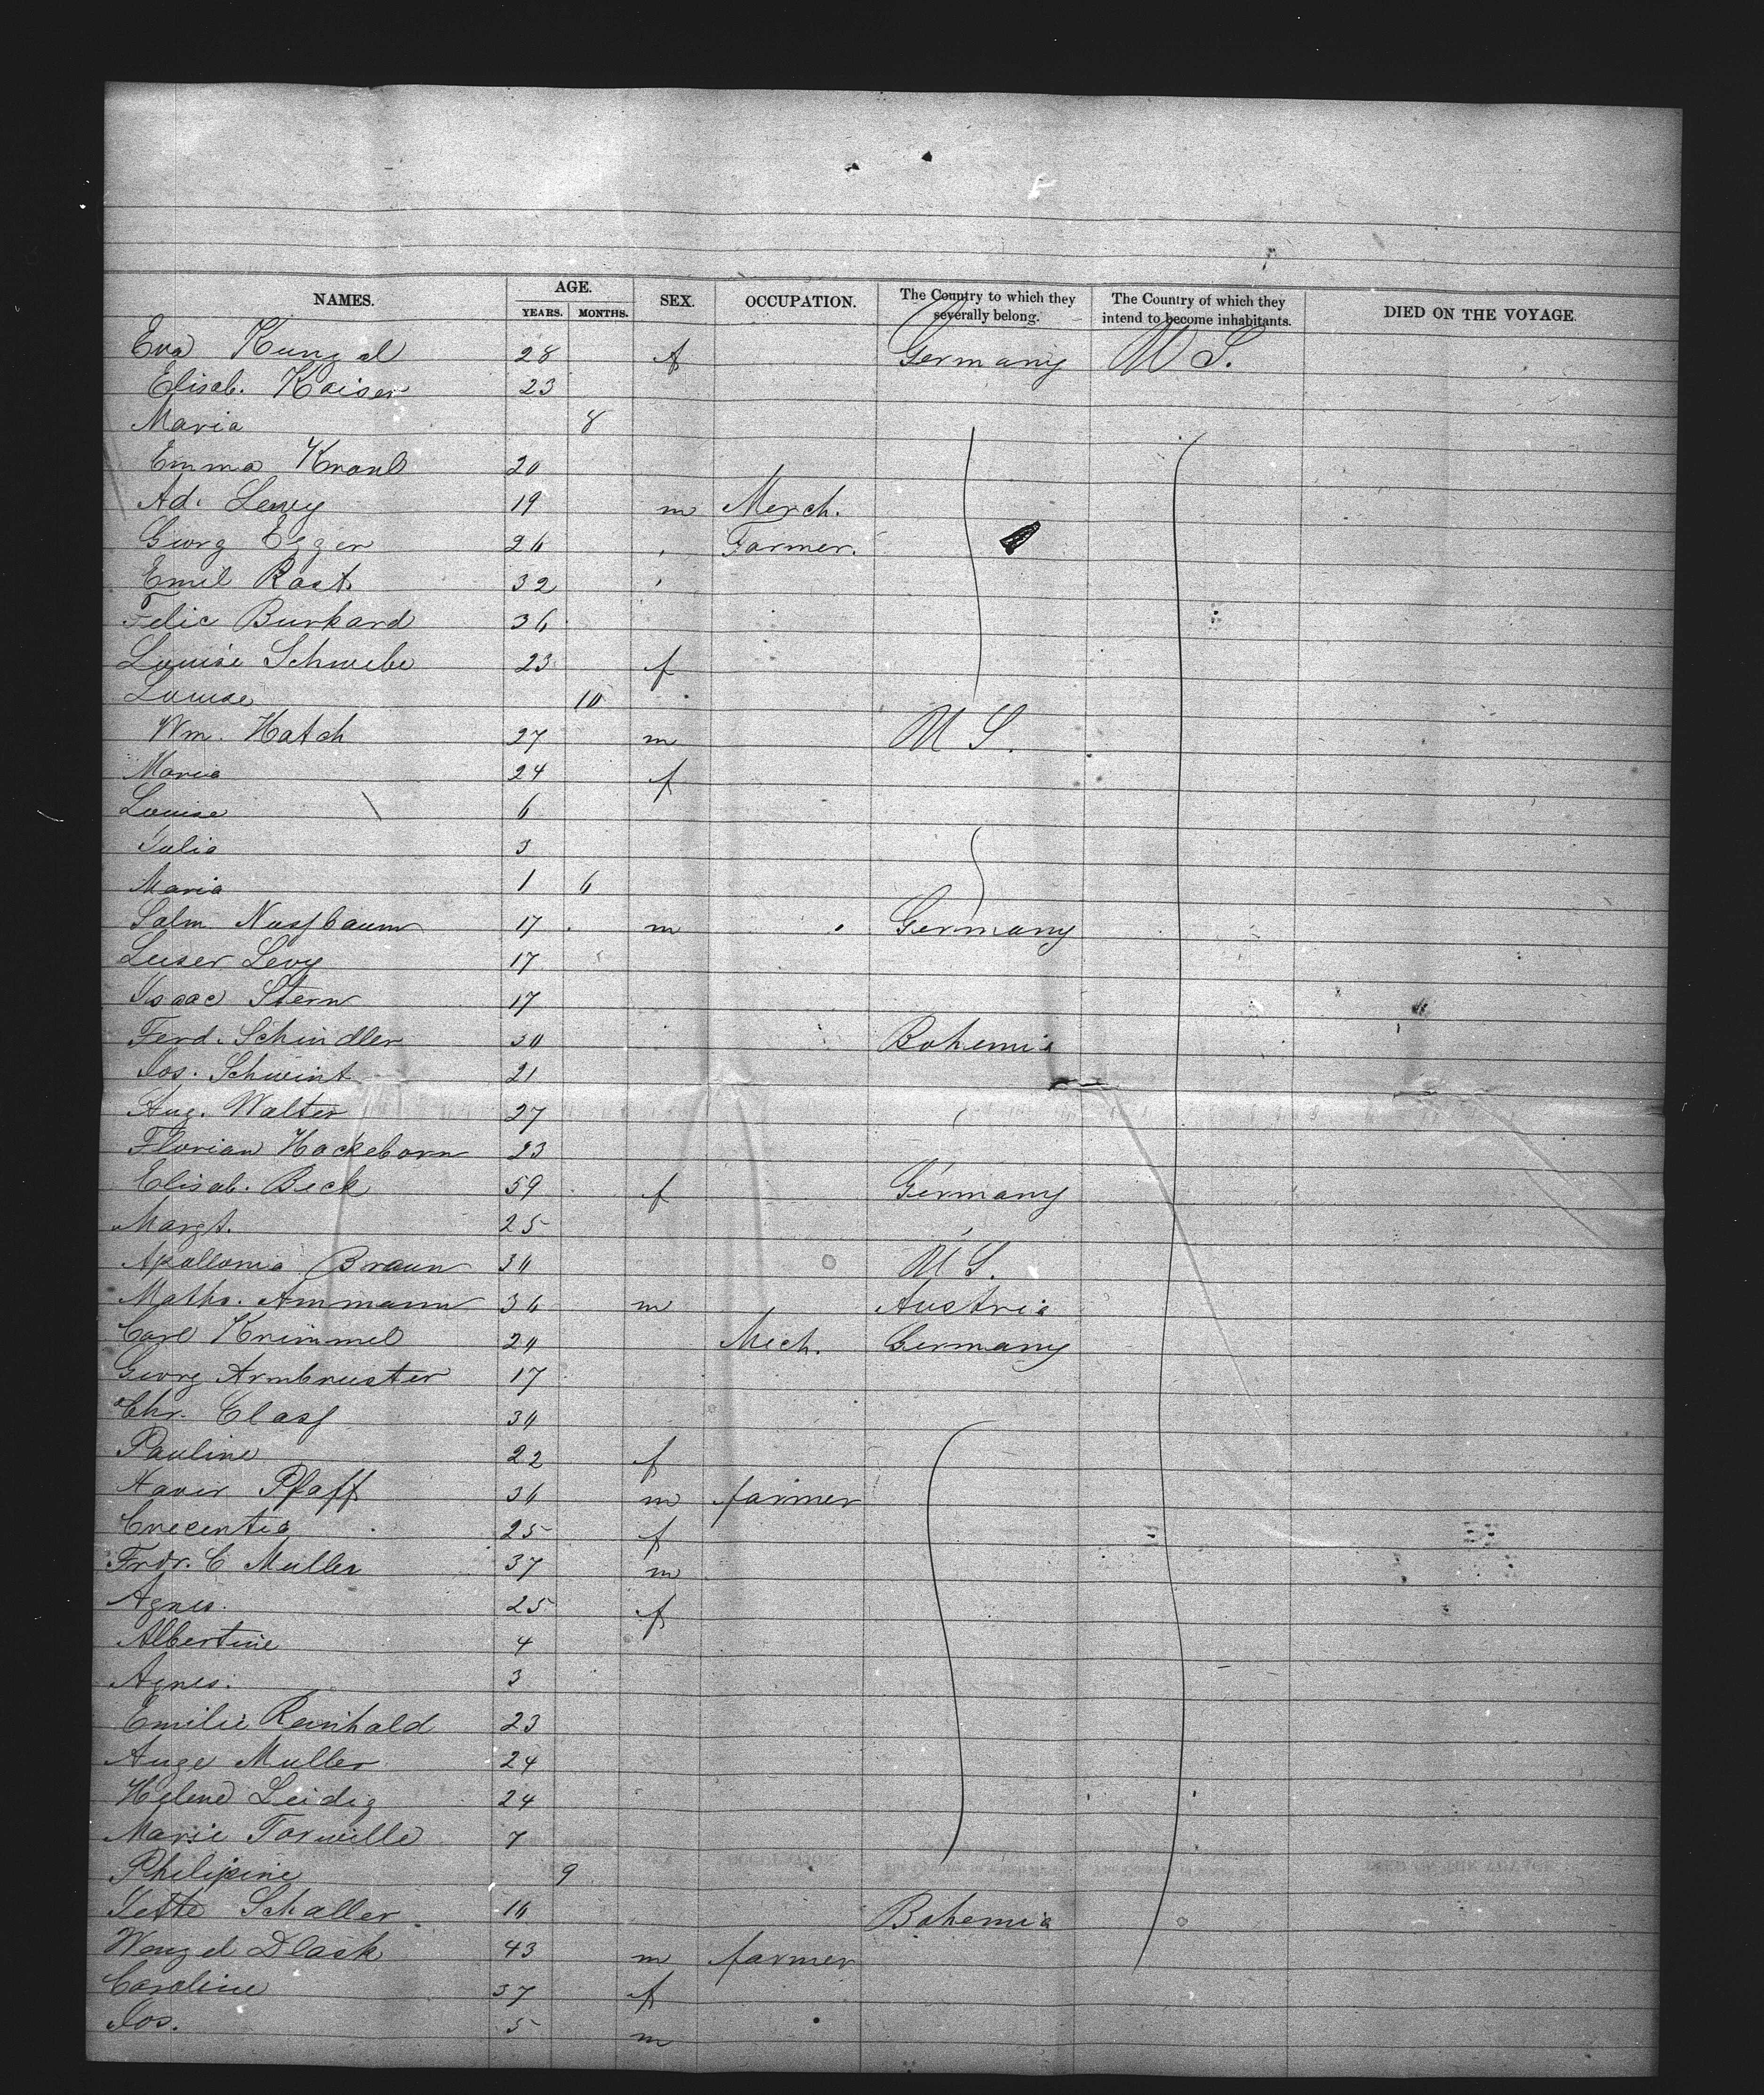 NAMES. AGE. YEARS. MONTHS. SEX. OCCUPATION. The Country to which they severally belong. The Country of which they intend to become inhabitants. DIED ON THE VOYAGE.
Eva Kungel 28 f Germany U S.
Elisab. Kaiser 23
Maria 8
Emma Kraul 20
Ad. Levy 19 m Merch.
Georg Egger 26 Farmer.
Emil Rost 32
Felic Burkard 36
Louise Schwebe 23 f
Louise 10
Wm. Hatch 27 m U S.
Maria 24 f
Louise 6
Julia 3
Maria 1 6
Salm. Nusfbaum 17 m Germany
Leiser Levy 17
Isaac Stern 17
Ferd. Schindler 30 Bohemia
Jos. Schwint 21
Aug. Walter 27
Florian Hackeborn 23
Elisab. Beck 59 f Germany
Margt. 25
Apollonia Braun 30 U S.
Maths. Ammann 36 m Austria
Carl Krimmel 20 Mech. Germany
Georg Armbruster 17
Chr. Clasf 30
Pauline 22 f
Xaver Pfaff 36 m farmer
Crecentia 25 f
Frdr. C Muller 37 m
Agnes. 25 f
Albertine 4
Agnes. 3
Emilie Reinhald 23
Auge Muller 24
Helene Leidig 24
Marie Torwille 7
Philipine 9
Jette Schaller 16 Bohemia
Wenzel Dlask 43 m farmer
Caroline 37 f
Jos. 5 m